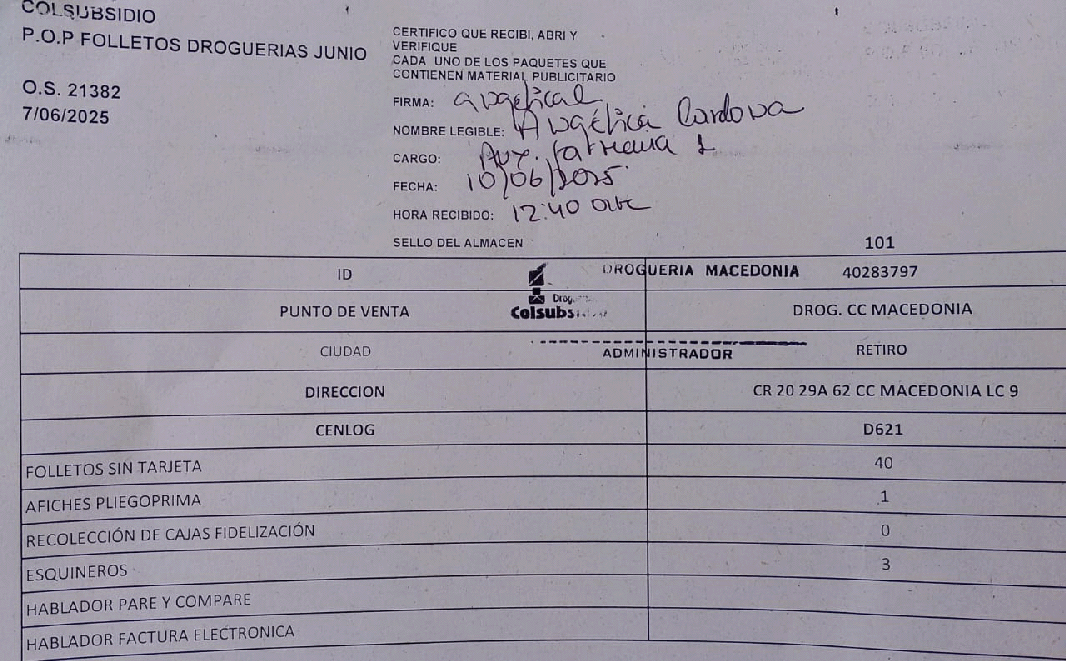 COLSUBSIDIO
P.O.P FOLLETOS DROGUERIAS JUNIO
O.S. 21382
7/06/2025
CERTIFICO QUE RECIBI, ABRI Y
VERIFIQUE
CADA UNO DE LOS PAQUETES QUE
CONTIENEN MATERIAL PUBLICITARIO
FIRMA: angelical
NOMBRE LEGIBLE: Angélica Cardona
CARGO: Aux. farmacia 1
FECHA: 10/06/2025
HORA RECIBIDO: 12:40
SELLO DEL ALMACEN
101
ID DROGUERIA MACEDONIA 40283797
Colsubs
PUNTO DE VENTA DROG. CC MACEDONIA
CIUDAD RETIRO
ADMINISTRADOR
DIRECCION CR 20 29A 62 CC MACEDONIA LC 9
CENLOG D621
FOLLETOS SIN TARJETA 40
AFICHES PLIEGOPRIMA 1
RECOLECCIÓN DE CAJAS FIDELIZACIÓN 0
ESQUINEROS 3
HABLADOR PARE Y COMPARE
HABLADOR FACTURA ELECTRONICA